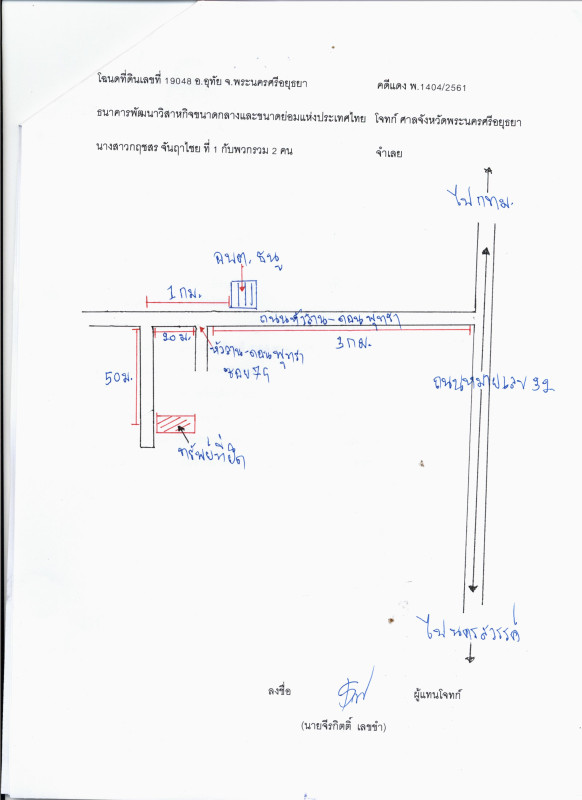 โฉนดที่ดินเลขที่ 19048 อ.อุทัย จ.พระนครศรีอยุธยา คดีแดง พ.1404/2561
ธนาคารพัฒนาวิสาหกิจขนาดกลางและขนาดย่อมแห่งประเทศไทย โจทก์ ศาลจังหวัดพระนครศรีอยุธยา
นางสาวกฤชสร จันฤาไชย ที่ 1 กับพวกรวม 2 คน จำเลย
ไป กทม.
อบต. ธนู
1 กม.
ถนนหัววาน-ดอนพุทรา
20 ม.
3 กม.
หัววาน-ดอนพุทรา
ซอย 75
50 ม.
ถนนหมายเลข 32
ทรัพย์ที่ยึด
ไปนครสวรรค์
ลงชื่อ ผู้แทนโจทก์
(นายจีรกิตติ์ เลขขำ)